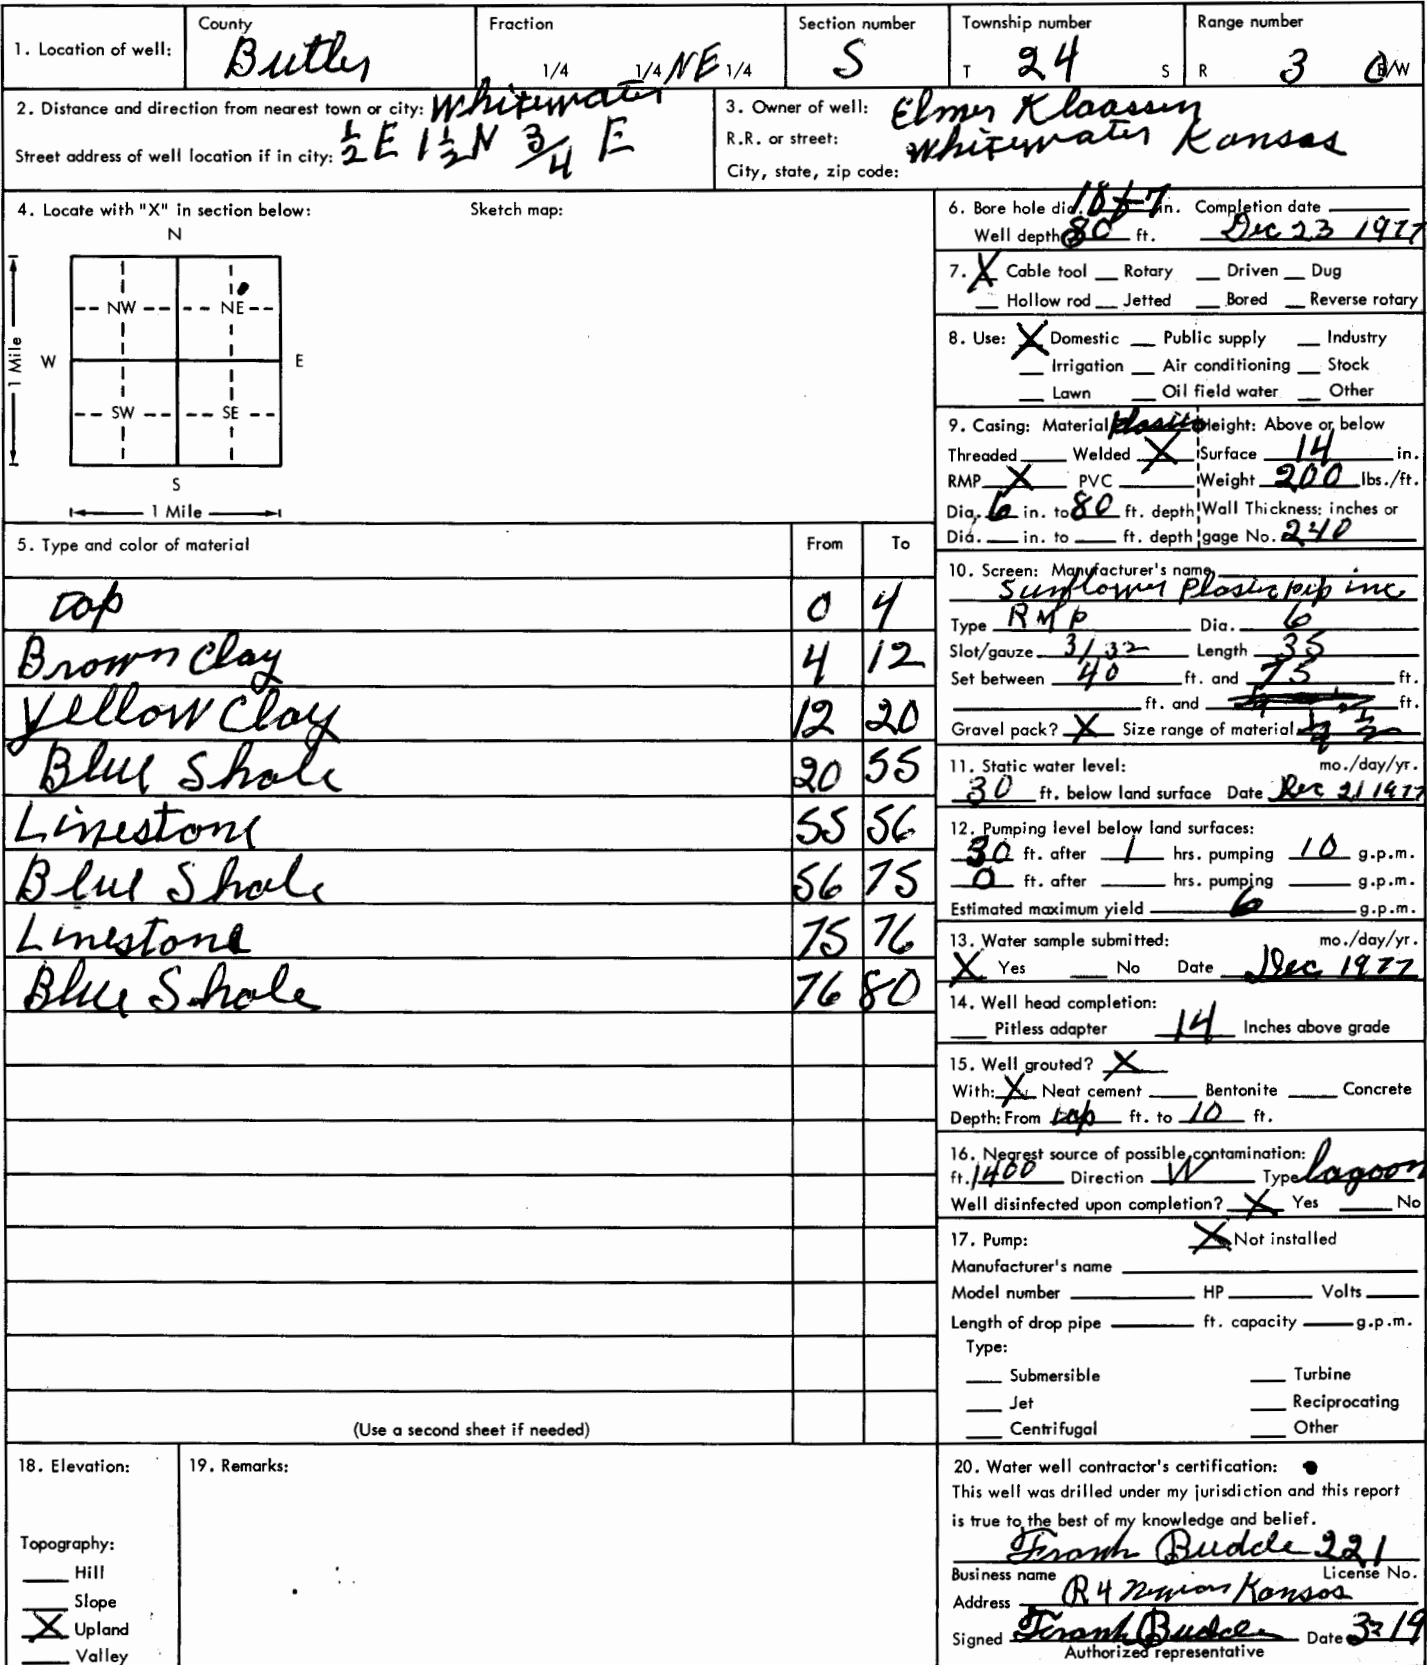 1. Location of well: County Butler Fraction 1/4 1/4 NE 1/4 Section number 5 Township number T 24 S Range number R 3 E/W
2. Distance and direction from nearest town or city: Whitewater
1/2 E 1 1/2 N 3/4 E
Street address of well location if in city:
3. Owner of well: Elmer Klaassen
R.R. or street: Whitewater Kansas
City, state, zip code:
4. Locate with "X" in section below: Sketch map:
N
NW NE
W E
1 Mile
SW SE
S
1 Mile
5. Type and color of material From To
top 0 4
Brown Clay 4 12
Yellow Clay 12 20
Blue Shale 20 55
Linestone 55 56
Blue Shale 56 75
Linestone 75 76
Blue Shale 76 80
(Use a second sheet if needed)
6. Bore hole dia. in. Completion date
Well depth 80 ft. Dec 23 1977
7. X Cable tool Rotary Driven Dug
Hollow rod Jetted Bored Reverse rotary
8. Use: X Domestic Public supply Industry
Irrigation Air conditioning Stock
Lawn Oil field water Other
9. Casing: Material plastic Height: Above or below
Threaded Welded X Surface 14 in.
RMP X PVC Weight 200 lbs./ft.
Dia. 6 in. to 80 ft. depth Wall Thickness: inches or
Dia. in. to ft. depth gage No. 240
10. Screen: Manufacturer's name
Sunflower Plasic pip inc
Type RMP Dia. 6
Slot/gauze 3/32 Length 35
Set between 40 ft. and 75 ft.
ft. and ft.
Gravel pack? X Size range of material 1/4 1/2
11. Static water level: mo./day/yr.
30 ft. below land surface Date Dec 21 1977
12. Pumping level below land surfaces:
30 ft. after 1 hrs. pumping 10 g.p.m.
0 ft. after hrs. pumping g.p.m.
Estimated maximum yield 6 g.p.m.
13. Water sample submitted: mo./day/yr.
X Yes No Date Dec 1977
14. Well head completion:
Pitless adapter 14 Inches above grade
15. Well grouted? X
With: X Neat cement Bentonite Concrete
Depth: From top ft. to 10 ft.
16. Nearest source of possible contamination:
ft. 1400 Direction W Type lagoon
Well disinfected upon completion? X Yes No
17. Pump: X Not installed
Manufacturer's name
Model number HP Volts
Length of drop pipe ft. capacity g.p.m.
Type:
Submersible Turbine
Jet Reciprocating
Centrifugal Other
18. Elevation:
Topography:
Hill
Slope
X Upland
Valley
19. Remarks:
20. Water well contractor's certification:
This well was drilled under my jurisdiction and this report
is true to the best of my knowledge and belief.
Frank Budde 221
Business name License No.
Address R 4 Kansas
Signed Frank Budde Date
Authorized representative